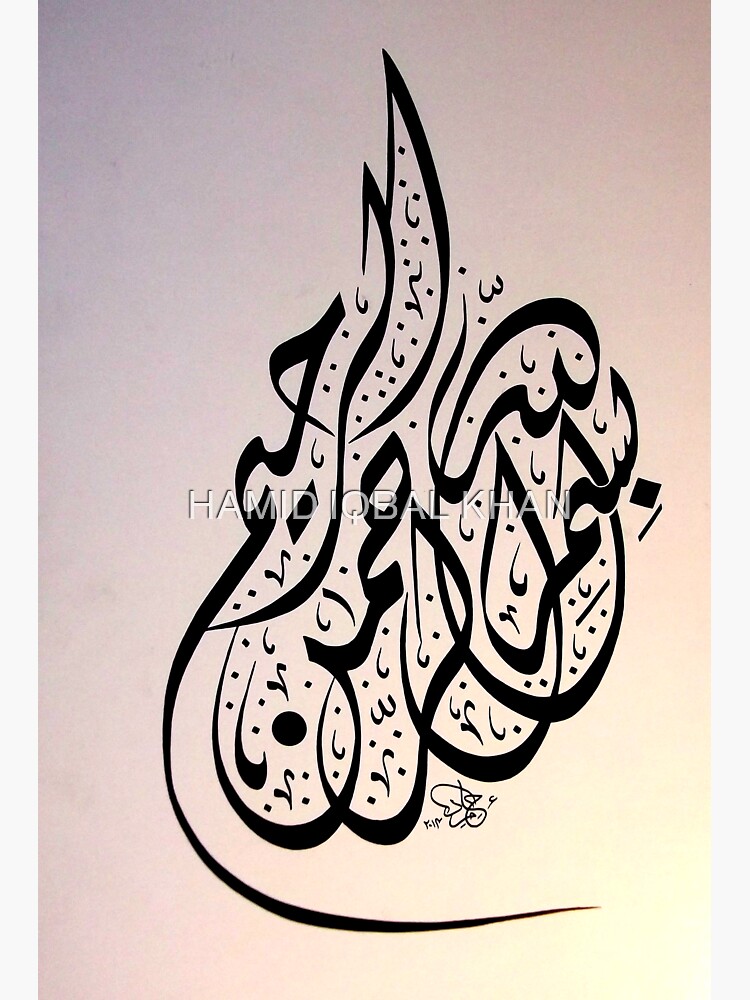 بسم الله الرحمن الرحيم
HAMID IQBAL KHAN